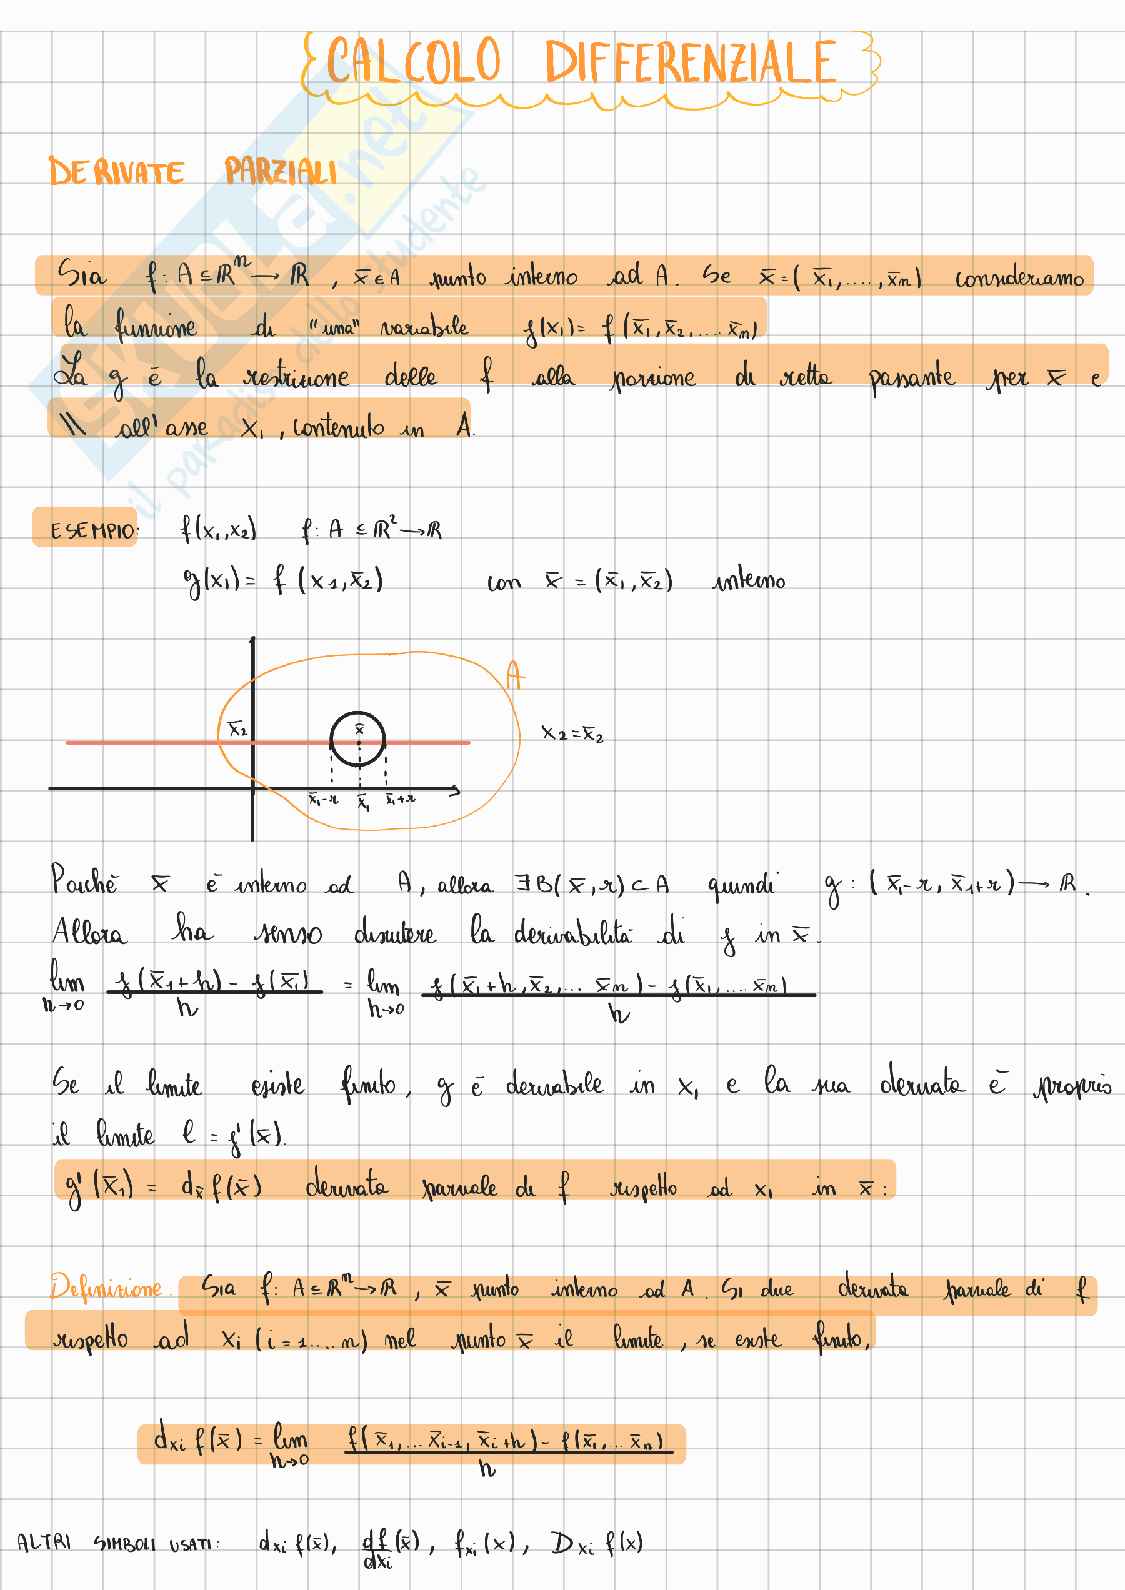 CALCOLO DIFFERENZIALE
DERIVATE PARZIALI
Sia f: A ⊆ ℝⁿ → ℝ, x̄ ∈ A punto interno ad A. Se x̄ = (x̄₁, ...., x̄ₙ) consideriamo
la funzione di "una" variabile g(x₁) = f(x̄₁, x̄₂, ... x̄ₙ)
La g è la restrizione delle f alla porzione di retta passante per x̄ e
\\ all'asse x₁, contenuto in A.
ESEMPIO: f(x₁,x₂) f: A ⊆ ℝ² → ℝ
g(x₁) = f(x₁,x̄₂) con x̄ = (x̄₁,x̄₂) interno
A
x̄₂ x̄ x₂=x̄₂
x̄₁-r x̄₁ x̄₁+r
Poiché x̄ è interno ad A, allora ∃B(x̄,r) ⊂ A quindi g: (x̄₁-r, x̄₁+r) → ℝ.
Allora ha senso discutere la derivabilità di g in x̄.
lim h→0 g(x̄₁+h) - g(x̄₁) / h = lim h→0 f(x̄₁+h, x̄₂, ... x̄ₙ) - f(x̄₁, .... x̄ₙ) / h
Se il limite esiste finito, g è derivabile in x₁ e la sua derivata è proprio
il limite l = g'(x̄).
g'(x̄₁) = dx̄ f(x̄) derivata parziale di f rispetto ad x₁ in x̄:
Definizione. Sia f: A ⊆ ℝⁿ → ℝ, x̄ punto interno ad A. Si dice derivata parziale di f
rispetto ad xᵢ (i = 1.... n) nel punto x̄ il limite, se esiste finito,
dxᵢ f(x̄) = lim h→0 f(x̄₁, ... x̄ᵢ₋₁, x̄ᵢ+h) - f(x̄₁, ... x̄ₙ) / h
ALTRI SIMBOLI USATI: dxᵢ f(x̄), df/dxᵢ (x̄), fxᵢ(x), Dxᵢ f(x)
SKUOLA.net
il paradiso dello studente